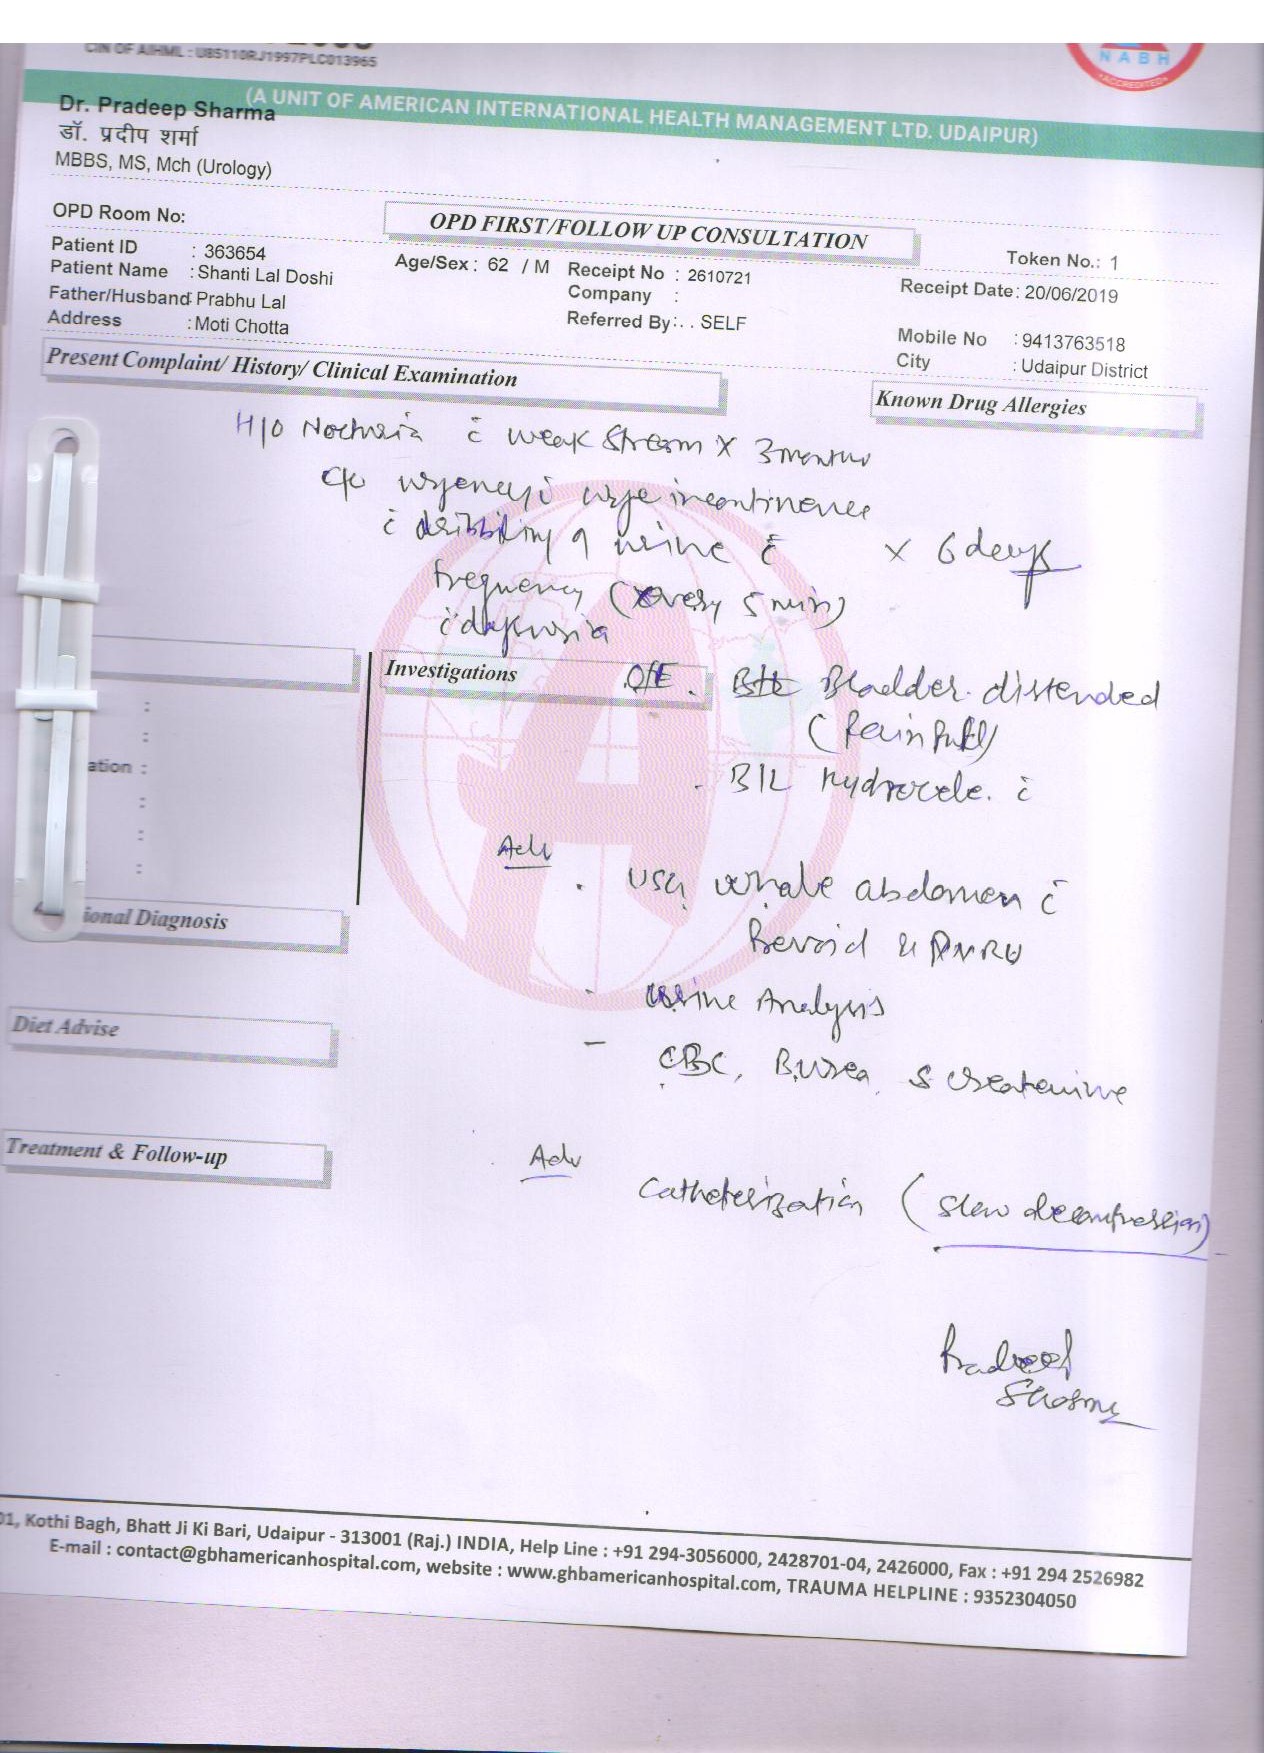 CIN OF AIHML : U85110RJ1997PLC013965
NABH
ACCREDITED
(A UNIT OF AMERICAN INTERNATIONAL HEALTH MANAGEMENT LTD. UDAIPUR)
Dr. Pradeep Sharma
डॉ. प्रदीप शर्मा
MBBS, MS, Mch (Urology)
OPD Room No:
OPD FIRST/FOLLOW UP CONSULTATION
Token No.: 1
Patient ID : 363654
Patient Name : Shanti Lal Doshi
Age/Sex : 62 / M
Receipt No : 2610721
Receipt Date: 20/06/2019
Father/Husband: Prabhu Lal
Company :
Address : Moti Chotta
Referred By:. . SELF
Mobile No : 9413763518
City : Udaipur District
Present Complaint/ History/ Clinical Examination
Known Drug Allergies
H/O Nocturia c̄ weak stream x 3 months
C/o urgency c̄ urge incontinence
c̄ dribbling of urine c̄ x 6 days
frequency (every 5 min)
c̄ dysuria
Investigations
O/E. Bladder distended
(Painful)
- B/L Hydrocele. c̄
ation :
Adv
. USG whole abdomen c̄
Prevoid & PVRU
ional Diagnosis
- Urine Analysis
Diet Advise
- CBC, B.Urea, S Creatinine
Treatment & Follow-up
Adv
Catheterization (slow decompression)
Pradeep
Sharma
01, Kothi Bagh, Bhatt Ji Ki Bari, Udaipur - 313001 (Raj.) INDIA, Help Line : +91 294-3056000, 2428701-04, 2426000, Fax : +91 294 2526982
E-mail : contact@gbhamericanhospital.com, website : www.ghbamericanhospital.com, TRAUMA HELPLINE : 9352304050